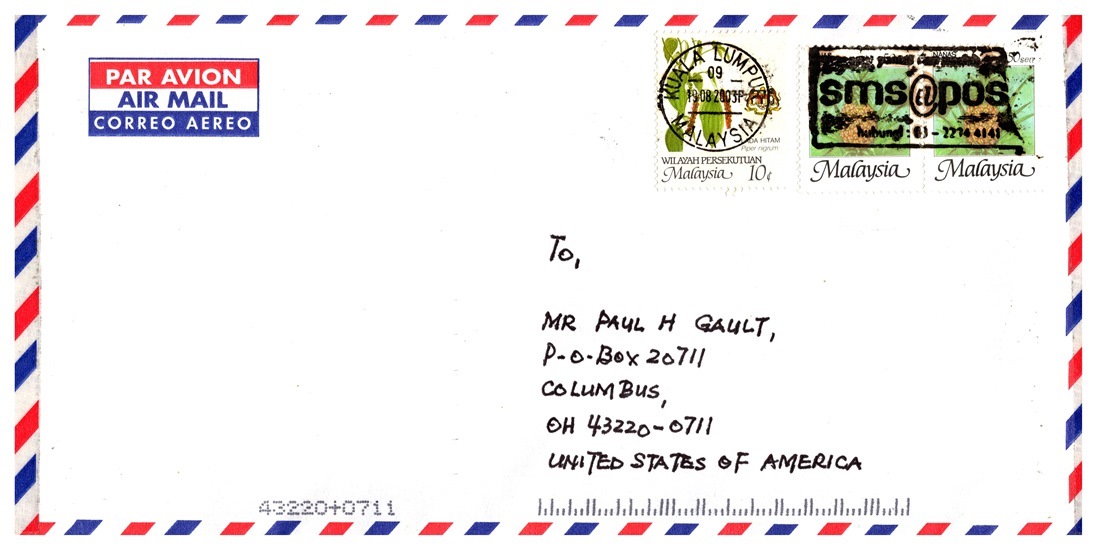 PAR AVION
AIR MAIL
CORREO AEREO
KUALA LUMPUR
09
19 08 2003
MALAYSIA
HITAM
Piper nigrum
WILAYAH PERSEKUTUAN
Malaysia 10¢
NANAS
30 sen
sms@pos
hubungi : 03 - 2274 4141
Malaysia
Malaysia
To,
MR PAUL H GAULT,
P-O-BOX 20711
COLUMBUS,
OH 43220-0711
UNITED STATES OF AMERICA
43220+0711